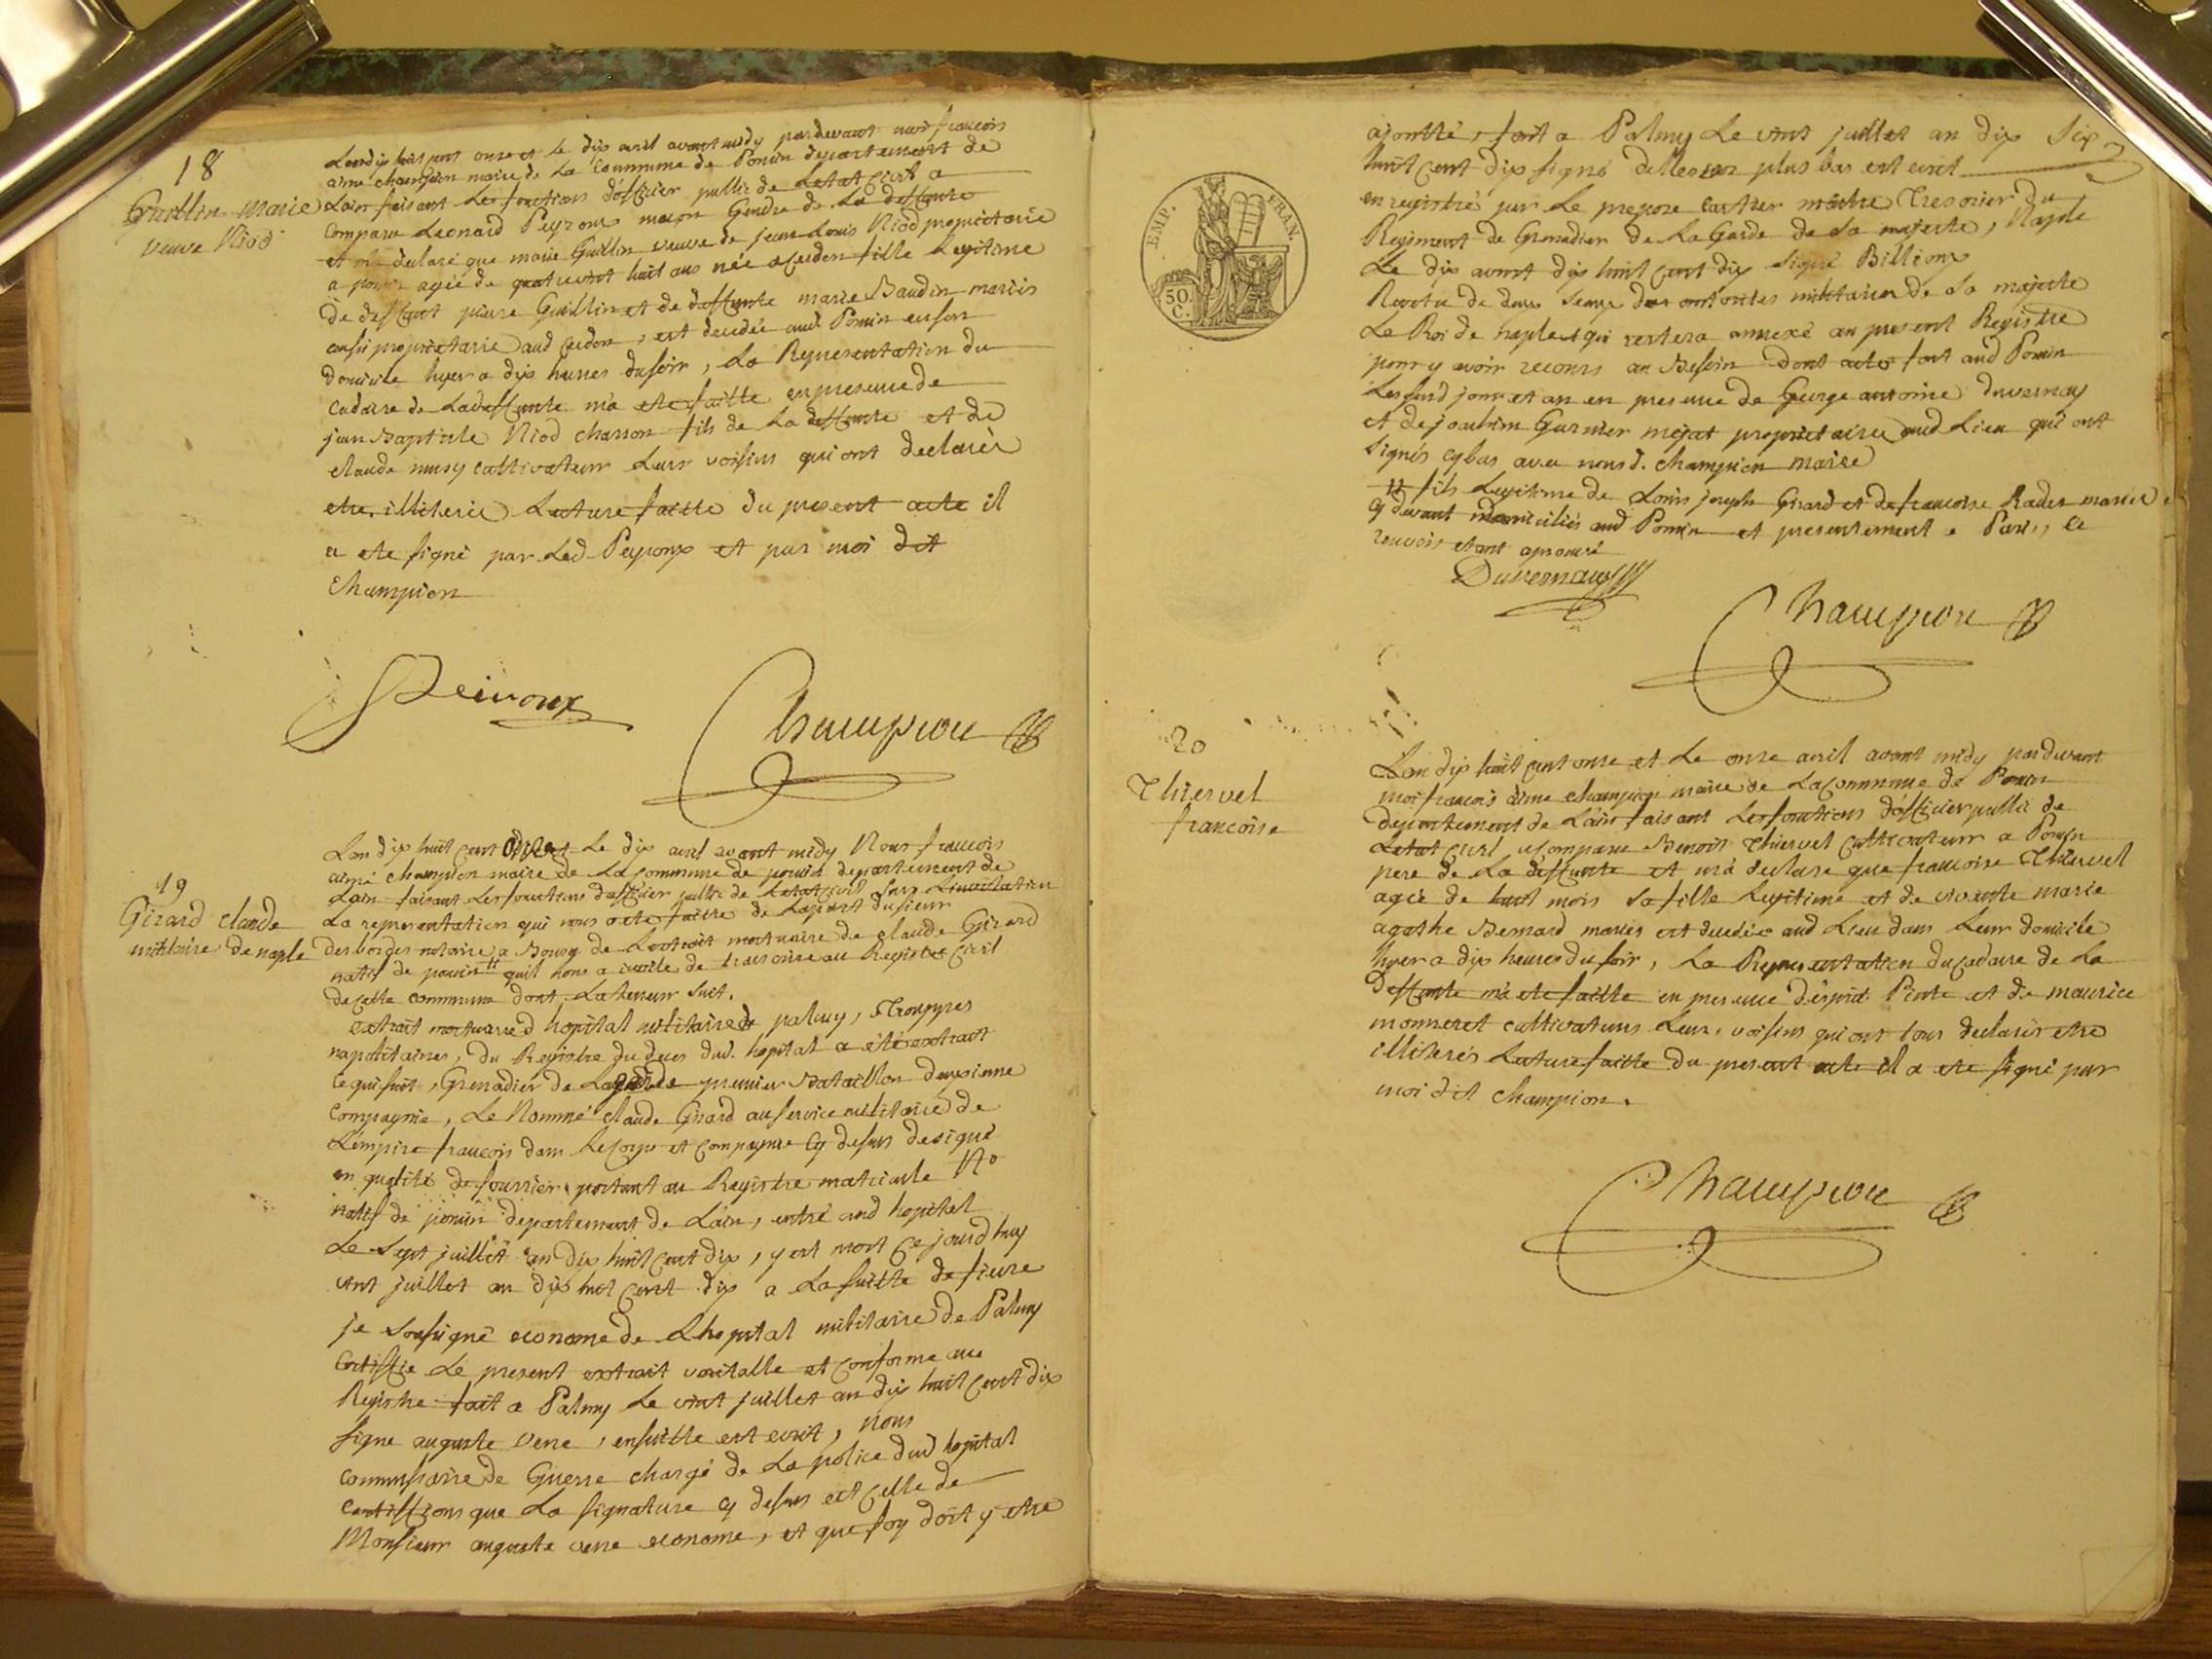 18
Guillin Marie
veuve Niod
Lan dix huit cent onze et le dix avril avant midy pardevant nous francois
aimé champion maire de La Commune de Poncin departement de
Lain faisant Les fonctions dofficier public de Letat Civil a
comparu Leonard Peyroux macon Gendre de La deffunte
et m'a declaré que marie Guillin veuve de jean Louis Niod proprietaire
a poncin agée de quatrevint huit ans née a Cerdon fille Legitime
de deffunt pierre Guillin et de deffunte marie Baudin mariés
proprietaire aud Cerdon, est decedée aud Poncin en son
domicile hyer a dix heures du soir, La Representation du
cadavre de Ladeffunte m'a ete faitte en presence de
jean Baptiste Niod charron fils de La deffunte et de
claude musy cultivateur Leurs voisins qui ont declarés
etre illiterés Lecture faitte du present acte il
a ete signé par Led Peyroux et par moi dit
Champion
Peiroux
Champion
19
Girard claude
militaire de naple
Lan dix huit cent onze et Le dix avril avant midy Nous francois
aimé champion maire de La Commune de poncin departement de
Lain faisant Les fonctions dofficier public de Letat Civil, sur Linvitation
La representation qui nous a ete faitte de Lapart du sieur
desbordes notaire a Bourg de Lextrait mortuaire de claude Girard
natif de poncin # quil nous a invité de transcrire au Registre Civil
de cette commune dont La teneur suit.
extrait mortuaire d hopital militaire de palmy, Trouppes
napolitaines, du Registre du deces dud. hopital a été extrait
ce qui suit, Grenadier de Lagarde premier Bataillon deuxieme
Compagnie, Le Nommé claude Girard au service militaire de
L'empire francois dans Le corps et compagnie cy dessus designé
en qualité de fourrier, portant au Registre matricule No
natif de poncin departement de Lain, entré aud hopital
Le sept juillet an dix huit cent dix, y est mort ce jourdhuy
vint juillet an dix huit cent dix a La suitte de fievre
je soussigné econome de Lhopital militaire de Palmy
Certiffie Le present extrait veritable et conforme au
Registre fait a Palmy Le vint juillet an dix huit cent dix
signe auguste verre, ensuitte est ecrit, nous
commissaire de Guerre chargé de La police dud hopital
certiffions que La signature cy dessus est celle de
Monsieur auguste verre econome, et que foy doit y etre
EMP. FRAN.
50
C.
ajoutté, fait a Palmy Le vint juillet an dix
huit cent dix signé plus bas est ecrit
en registré par Le prepose Tresorier du
Regiment de Grenadier de La Garde de Sa majeste, Naple
Le dix aoust dix huit cent dix signé Billioux
Revetu de deux seaux des autorités militaires de Sa majeste
Le Roi de naple et qui restera annexé au present Registre
pour y avoir recours au Besoin dont acte fait aud Poncin
Lesusd jour et an en presence de George antoine duvernay
et de joachim Garnier mejat proprietaires aud Lieu qui ont
signés cy bas avec nous d. champion maire
# fils Legitime de Louis joseph Girard et de francoise Rader mariés
cy devant domiciliés aud Poncin et presentement a Paris, ce
renvois etant aprouvé
Duvernay
Champion
20
Thiervel
francoise
Lan dix huit cent onze et Le onze avril avant midy pardevant
moi francois aime champion maire de La Commune de Poncin
departement de Lain faisant Les fonctions dofficier public de
Letat Civil a comparu Benoit Thiervel cultivateur a Poncin
pere de La deffunte et m'a declare que francoise Thiervel
agée de huit mois sa fille Legitime et de vivante marie
agathe Bernard mariés est decedée aud Lieu dans Leur domicile
hyer a dix heures du soir, La Representation du cadavre de La
deffunte m'a ete faitte en presence d'esprit Piote et de maurice
monneret cultivateurs Leurs voisins qui ont tous declarés etre
illiterés Lecture faitte du present acte il a ete signé par
moi dit champion.
Champion